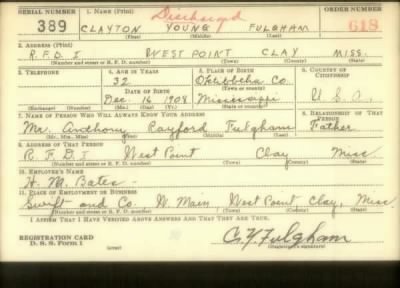 SERIAL NUMBER 1. NAME (Print) Discharged ORDER NUMBER
389 CLAYTON YOUNG FULGHAM 618
(First) (Middle) (Last)
2. ADDRESS (Print)
R.F.D. I WEST POINT CLAY MISS.
(Number and street or R. F. D. number) (Town) (County) (State)
3. TELEPHONE 4. AGE IN YEARS 5. PLACE OF BIRTH 6. COUNTRY OF CITIZENSHIP
32 Oktibbeha Co.
DATE OF BIRTH (Town or county)
Dec. 16 1908 Mississippi U.S.A.
(Exchange) (Number) (Mo.) (Day) (Yr.) (State or country)
7. NAME OF PERSON WHO WILL ALWAYS KNOW YOUR ADDRESS 8. RELATIONSHIP OF THAT PERSON
Mr. Anthony Rayford Fulgham Father
(Mr., Mrs., Miss) (First) (Middle) (Last)
9. ADDRESS OF THAT PERSON
R.F.D. I West Point Clay Miss
(Number and street or R. F. D. number) (Town) (County) (State)
10. EMPLOYER'S NAME
H. M. Bates
11. PLACE OF EMPLOYMENT OR BUSINESS
Swift and Co. W. Main West Point Clay, Miss.
(Number and street or R. F. D. number) (Town) (County) (State)
I AFFIRM THAT I HAVE VERIFIED ABOVE ANSWERS AND THAT THEY ARE TRUE.
REGISTRATION CARD
D. S. S. Form 1 (over) C. Y. Fulgham
(Registrant's signature)